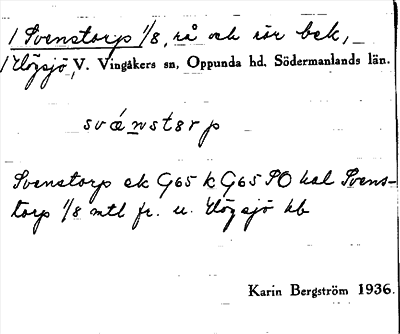 1 Svenstorp 1/8, rå och rör bek,
1 Högsjö, V. Vingåkers sn, Oppunda hd. Södermanlands län.
svánstərp
Svenstorp ek G65 k G65 SO kal Svens-
torp 1/8 mtl fr. u. Högsjö hb
Karin Bergström 1936.